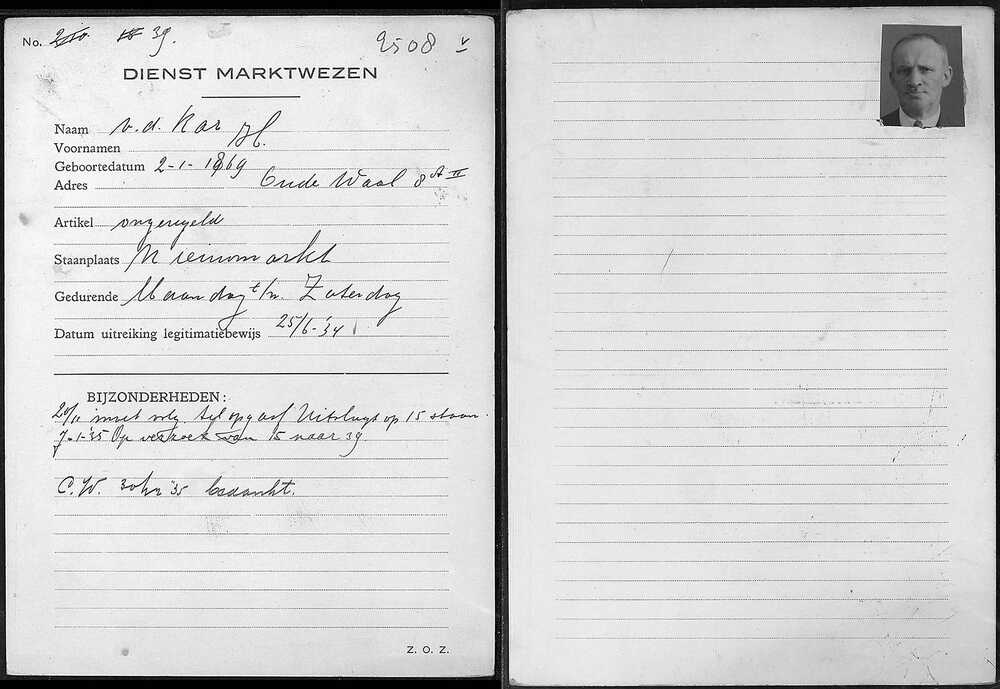 No. 39.
2508 v
DIENST MARKTWEZEN
Naam v.d. Kar
Voornamen H.
Geboortedatum 2-1-1869
Adres Oude Waal 8 A II
Artikel ongeregeld
Staanplaats Nieuwmarkt
Gedurende Maandag t/m. Zaterdag
Datum uitreiking legitimatiebewijs 25/6-'34
BIJZONDERHEDEN:
20/11 moet vlg. tel opgaaf op 15 staan.
7-1-'35 Op verzoek van 15 naar 39.
C.W. '35 bedankt.
Z. O. Z.